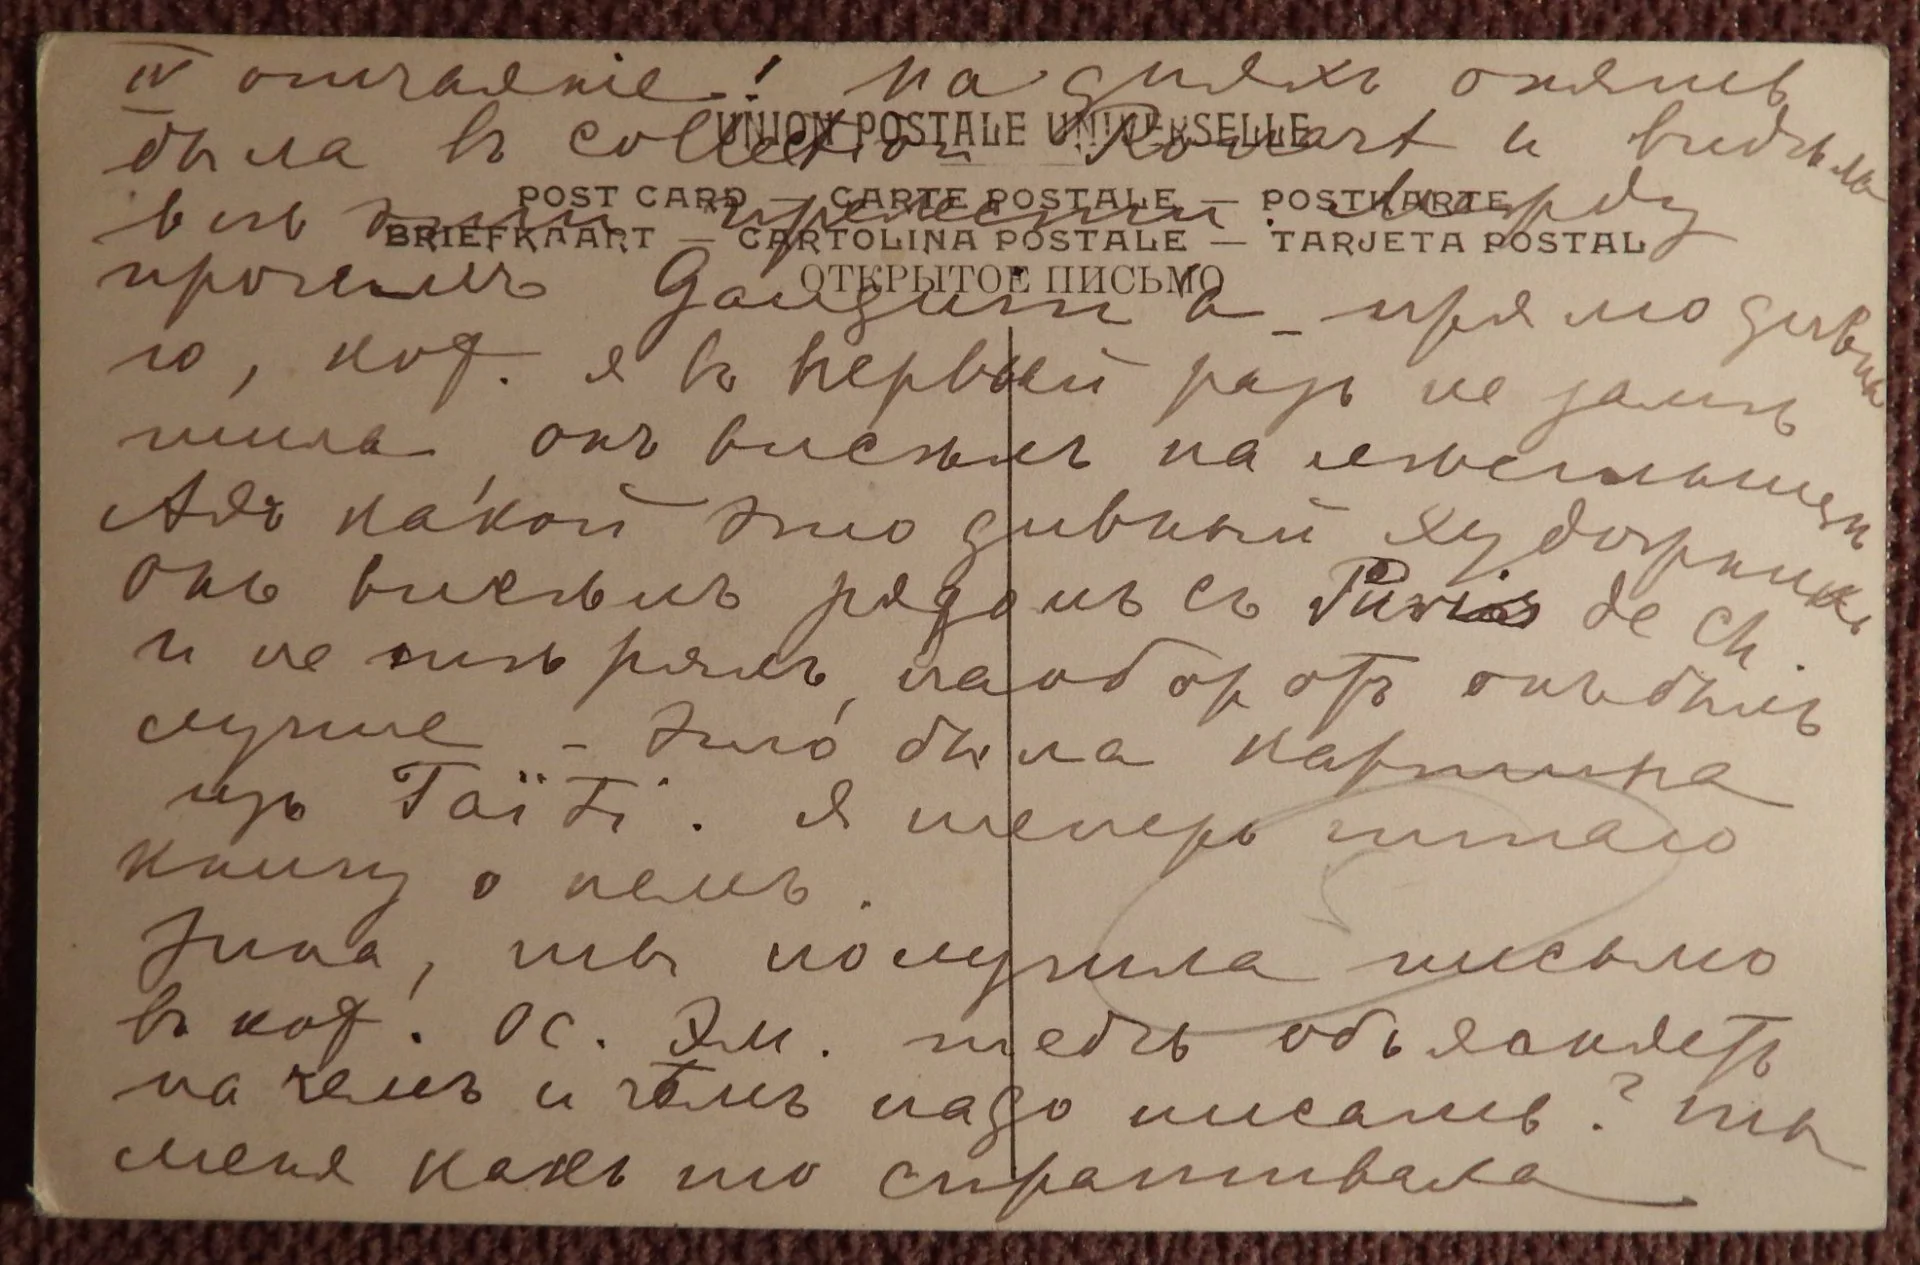 IV отчаянiе! На дняхъ опять
UNION POSTALE UNIVERSELLE
была въ collection Rouart и видѣла
POST CARD — CARTE POSTALE — POSTKARTE
всѣ эти прелести. Между
BRIEFKAART — CARTOLINA POSTALE — TARJETA POSTAL
ОТКРЫТОЕ ПИСЬМО
прочимъ Gauguin'а - прямо дивна
го, кот. я въ первый разъ не замѣ
тила, онъ висѣлъ на лѣстницѣ
Ахъ какой это дивный художникъ
Онъ висѣлъ рядомъ съ Puvis de Ch.
и не терялъ, наоборотъ онъ былъ
лучше - это была картина
изъ Taïti. Я теперь читаю
книгу о немъ.
Зина, ты получила письмо
въ кот. Ос. Эм. тебѣ объясняетъ
на чемъ и чѣмъ надо писать? ты
меня какъ то спрашивала